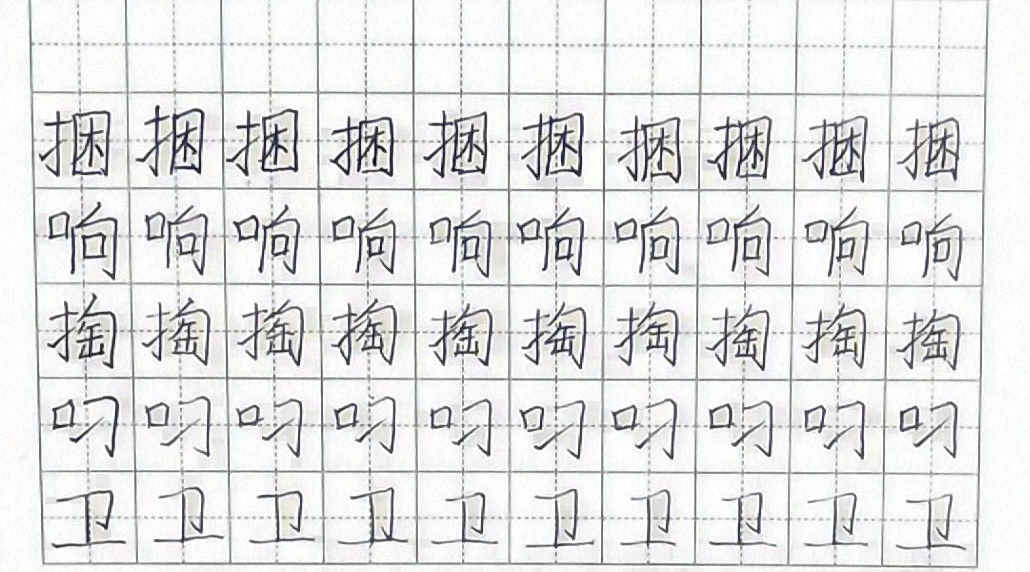 捆捆捆捆捆捆捆捆捆捆
响响响响响响响响响响
掏掏掏掏掏掏掏掏掏掏
叼叼叼叼叼叼叼叼叼叼
卫卫卫卫卫卫卫卫卫卫